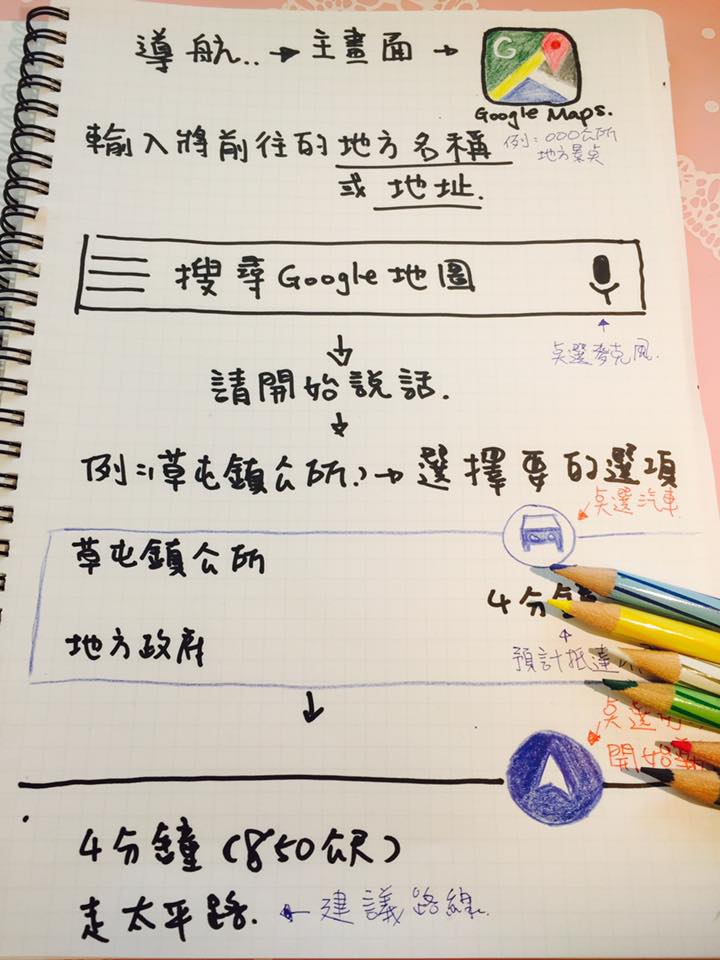 導航..→主畫面→
G
Google Maps.
輸入將前往的地方名稱
例:000公所
地方景点
或 地址.
搜尋Google地圖
点選麥克風.
請開始說話.
例:(草屯鎮公所.)→選擇要的選項
点選汽車
草屯鎮公所
4分鐘
地方政府
預計抵達
点選
開始
4分鐘(850公尺)
走太平路.←建議路線.